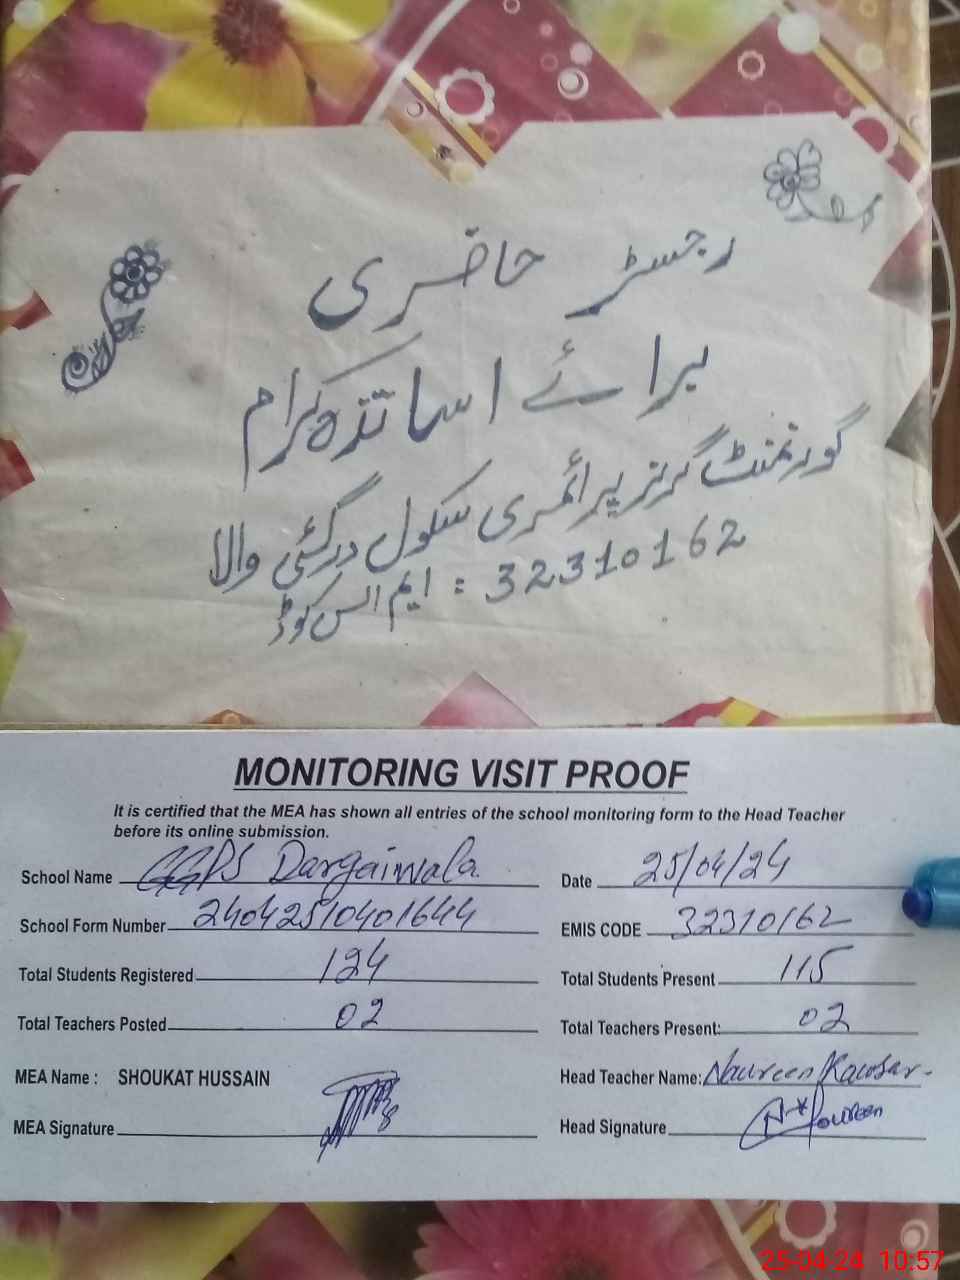 رجسٹر حاضری
برائے اساتذہ کرام
گورنمنٹ گرلز پرائمری سکول درگئی والا
ایم ایس کوڈ : 32310162
MONITORING VISIT PROOF
It is certified that the MEA has shown all entries of the school monitoring form to the Head Teacher
before its online submission.
School Name GGPS Dargaiwala Date 25/04/24
School Form Number 24042510401644 EMIS CODE 32310162
Total Students Registered 124 Total Students Present 115
Total Teachers Posted 02 Total Teachers Present: 02
MEA Name : SHOUKAT HUSSAIN Head Teacher Name: Naureen Kawsar
MEA Signature Head Signature Noureen
25-04-24 10:57